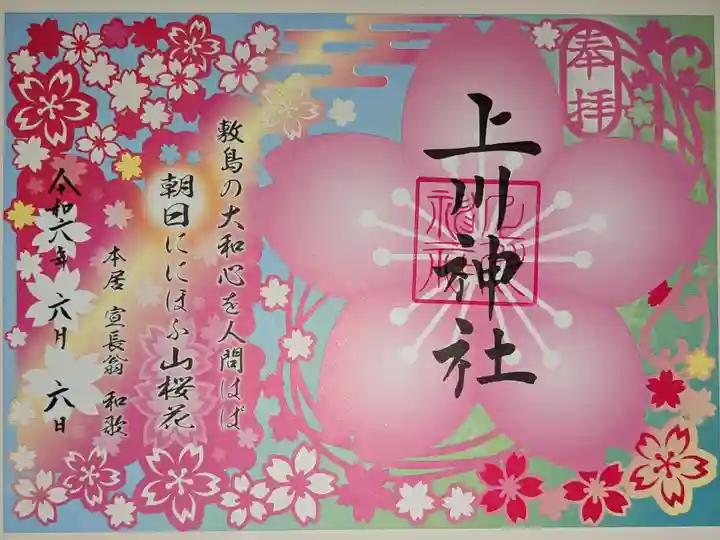 奉拝
上川神社
敷島の大和心を人問はば
朝日ににほふ山桜花
本居 宣長翁 和歌
令和六年 六月 六日